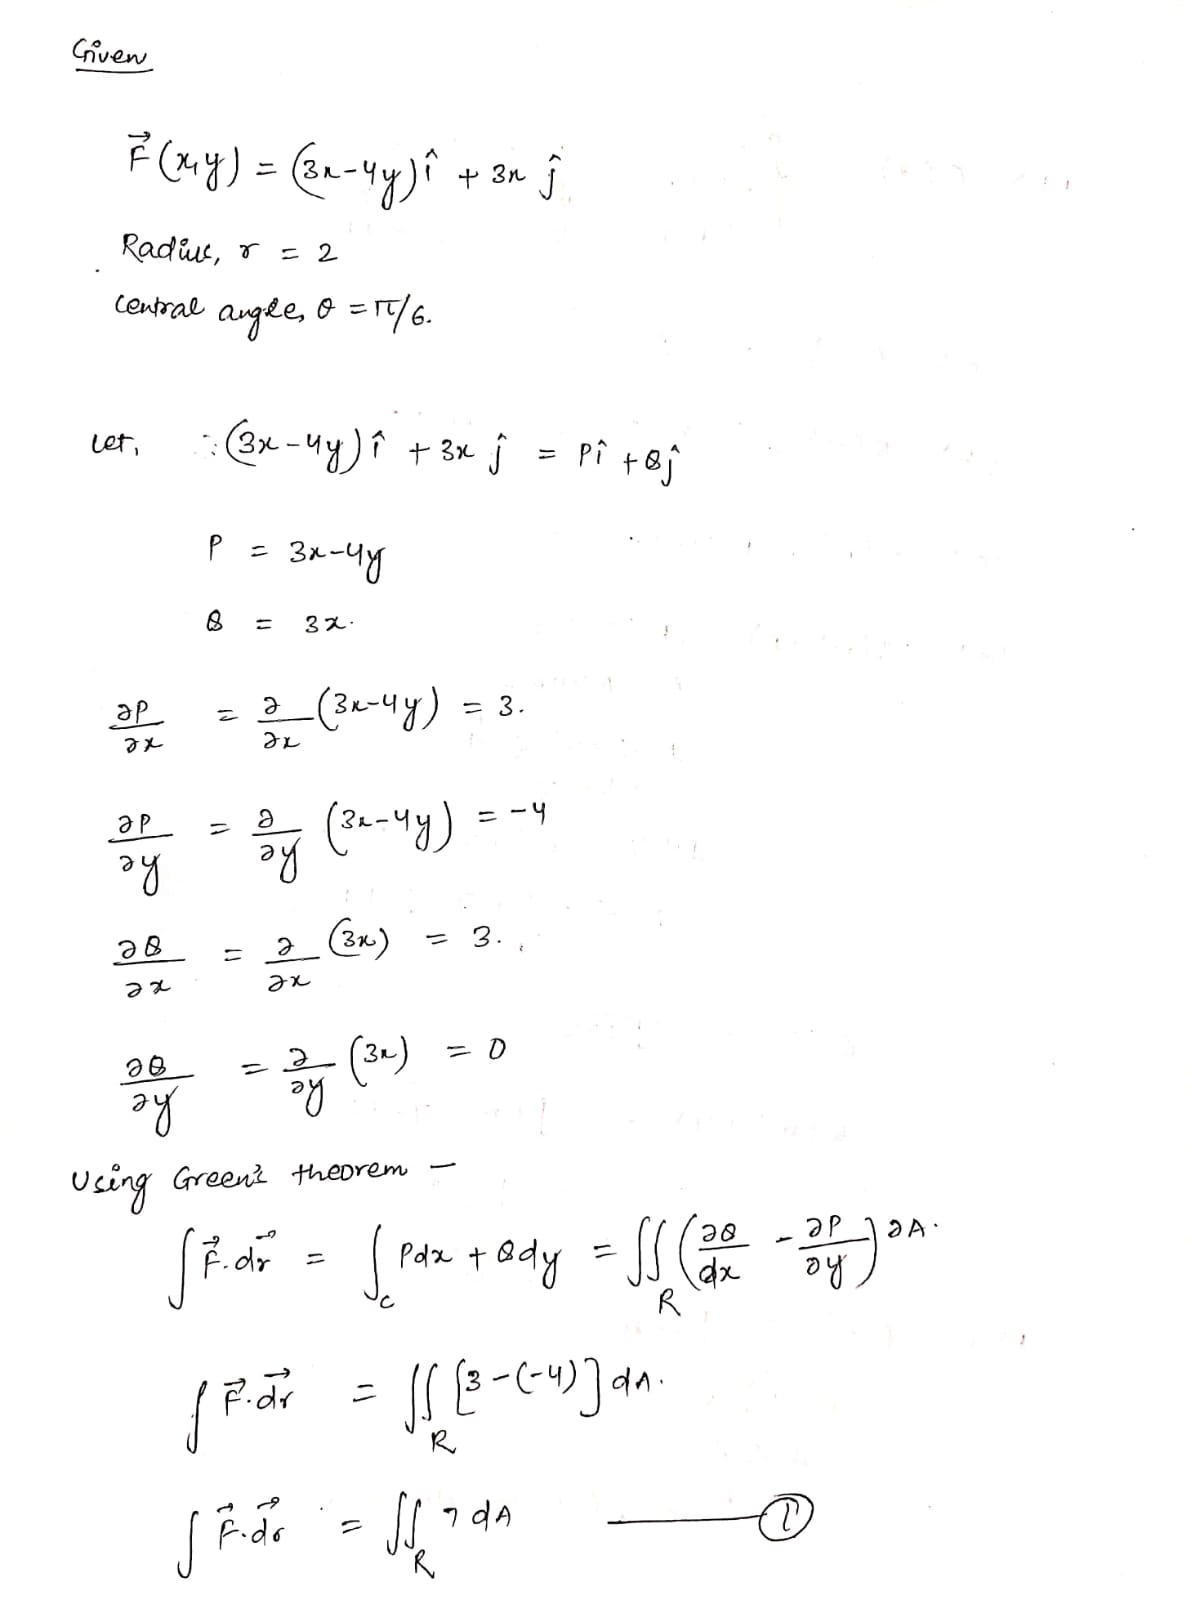 Given
F⃗(x,y) = (3x-4y)î + 3x ĵ
Radius, r = 2
Central angle, θ = π/6.
Let, ∴ (3x-4y) î + 3x ĵ = Pî + Qĵ
P = 3x-4y
Q = 3x.
∂P/∂x = ∂/∂x (3x-4y) = 3.
∂P/∂y = ∂/∂y (3x-4y) = -4
∂Q/∂x = ∂/∂x (3x) = 3.
∂Q/∂y = ∂/∂y (3x) = 0
Using Green's theorem —
∫ F⃗.dr⃗ = ∫_C Pdx + Qdy = ∬_R (∂Q/dx - ∂P/∂y) ∂A.
∫ F⃗.dr⃗ = ∬_R [3-(-4)] dA.
∫ F⃗.dr⃗ = ∬_R 7 dA —— ①